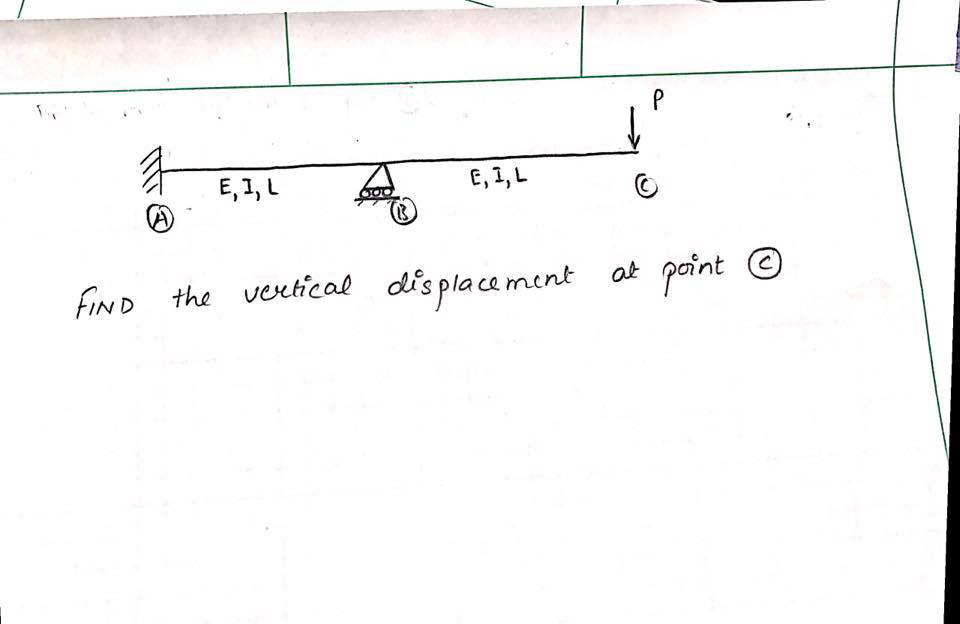 P
E, I, L
E, I, L
A
B
C
FIND the vertical displacement at point C